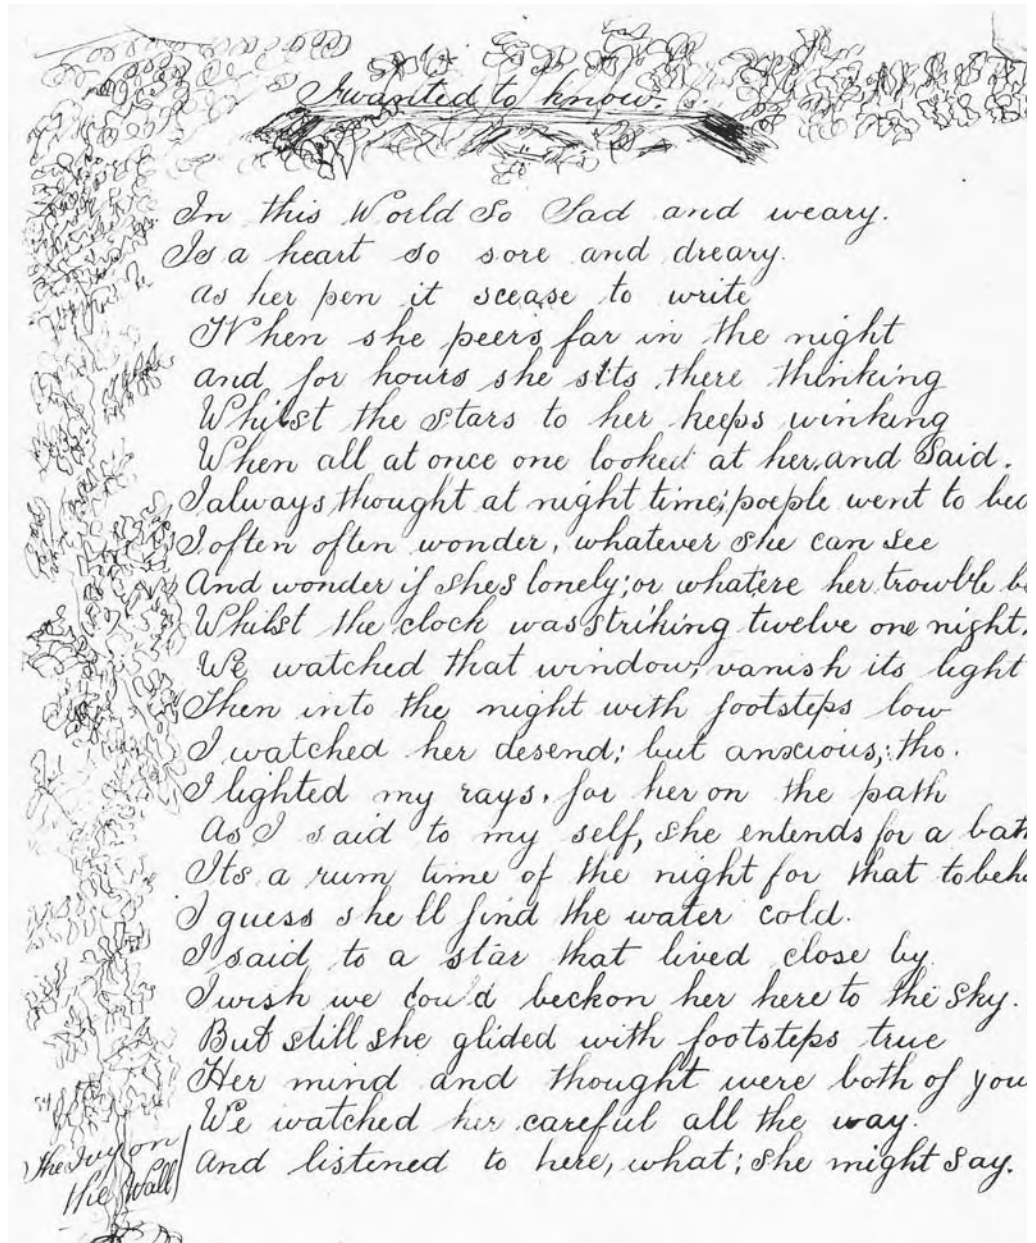 I wanted to know.
In this World So Sad and weary.
Is a heart so sore and dreary.
as her pen it scease to write
When she peers far in the night
and for hours she sits there thinking
Whilst the stars to her keeps winking
When all at once one looked at her, and Said.
I always thought at night time; poeple went to bed
I often often wonder, whatever she can see
And wonder if shes lonely; or what'ere her trowble be
Whilst the clock was striking twelve one night.
We watched that window, vanish its light
Then into the night with footsteps low
I watched her desend; but anxcious; tho.
I lighted my rays. for her on the path
As I said to my self, she entends for a bath
Its a rum time of the night for that to
I guess she ll find the water cold.
I said to a star that lived close by.
I wish we could beckon her here to the Sky.
But still she glided with footsteps true
Her mind and thought were both of you
We watched her careful all the way.
And listened to here, what; she might Say.
The Ivy on
the Wall